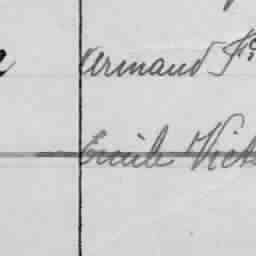 Armand Fs
Emile Vict